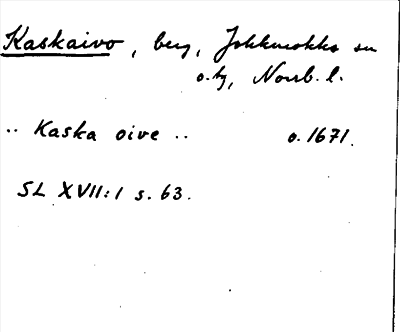 Kaskaivo, berg, Jokkmokks sn
o. tg, Norrb. l.
.. Kaska oive .. o. 1671.
SL XVII:1 s. 63.